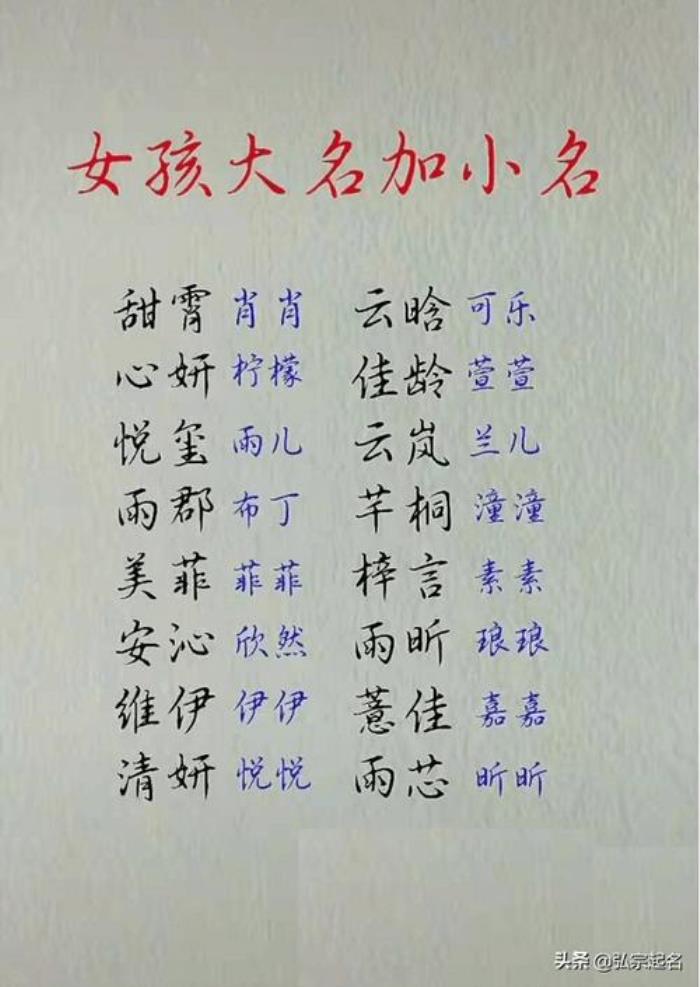 女孩大名加小名
甜霄 肖肖 云晗 可乐
心妍 柠檬 佳龄 萱萱
悦玺 雨儿 云岚 兰儿
雨郡 布丁 芊桐 潼潼
美菲 菲菲 梓言 素素
安沁 欣然 雨昕 琅琅
维伊 伊伊 薏佳 嘉嘉
清妍 悦悦 雨芯 昕昕
头条 @弘宗起名